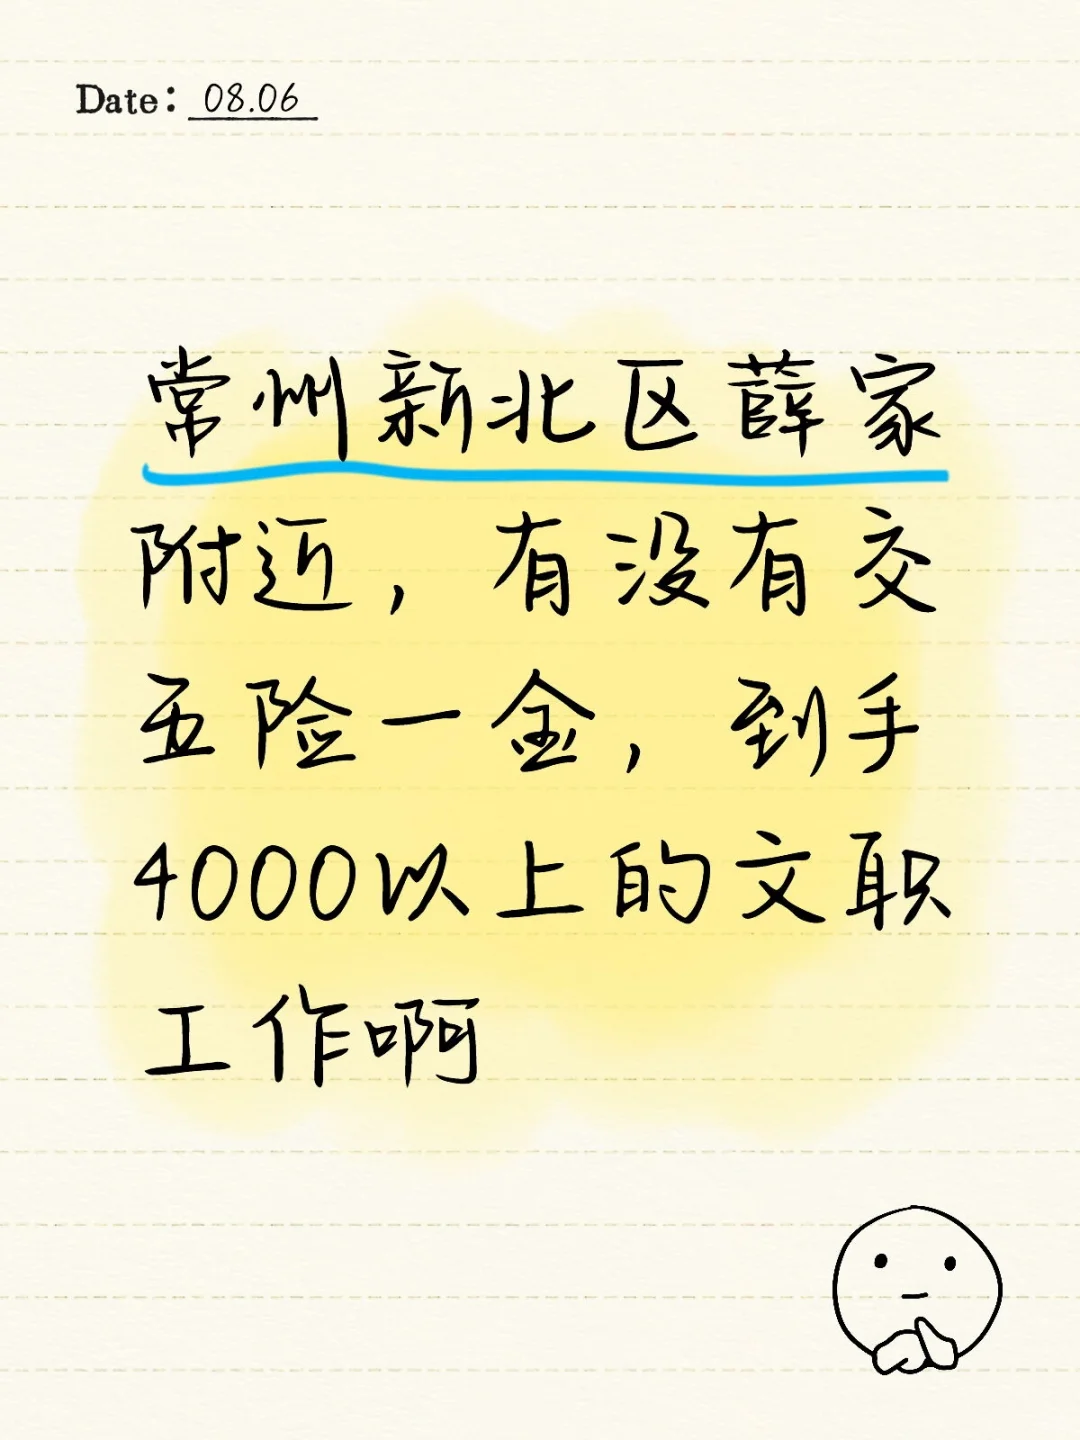 Date: 08.06
常州新北区薛家
附近，有没有交
五险一金，到手
4000以上的文职
工作啊